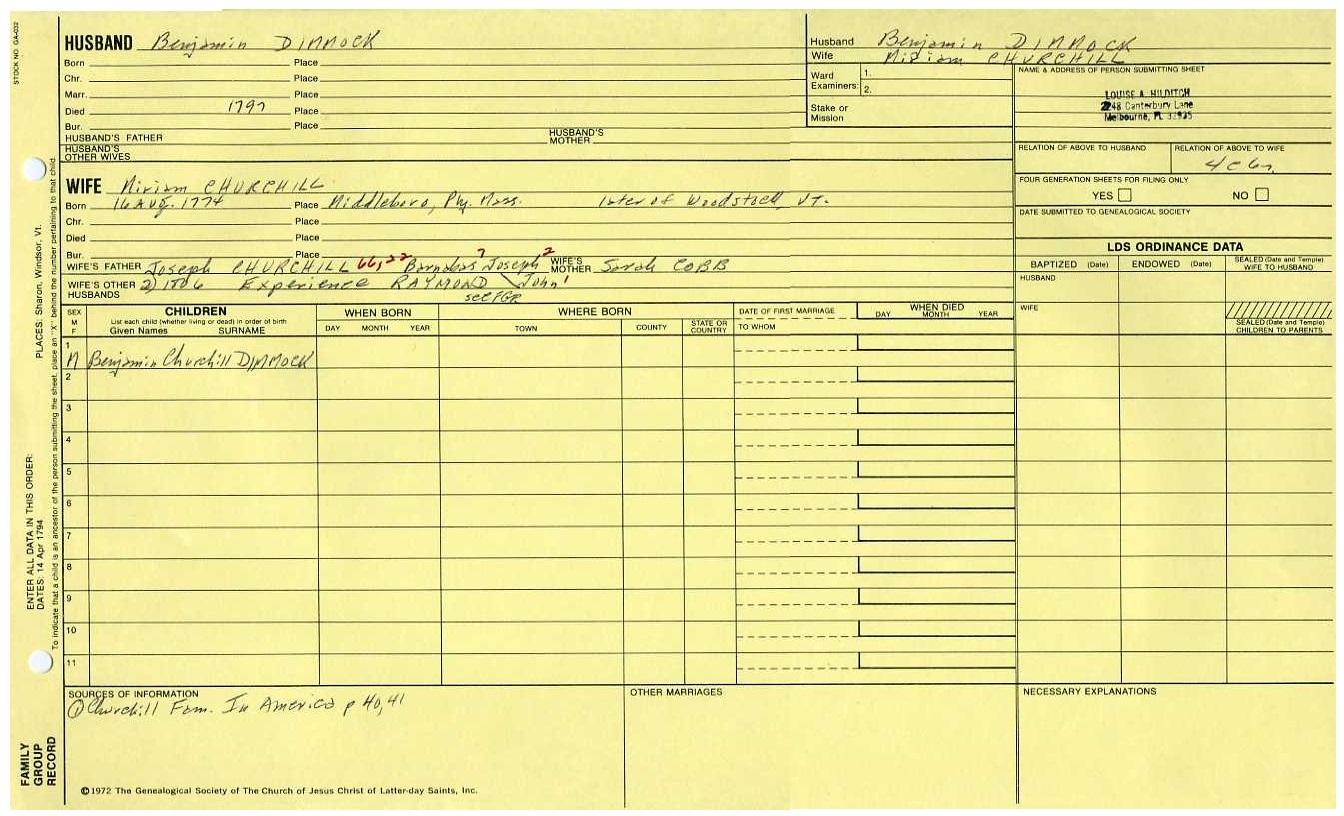 STOCK NO. GA-032
HUSBAND Benjamin DIMMOCK
Born Place
Chr. Place
Marr. Place
Died 1797 Place
Bur. Place
HUSBAND'S FATHER HUSBAND'S MOTHER
HUSBAND'S OTHER WIVES
Husband Benjamin DIMMOCK
Wife Miriam CHURCHILL
Ward Examiners: 1.
2.
Stake or Mission
NAME & ADDRESS OF PERSON SUBMITTING SHEET
LOUISE A. HILDITCH
2248 Canterbury Lane
Melbourne, FL 32935
RELATION OF ABOVE TO HUSBAND RELATION OF ABOVE TO WIFE
FOUR GENERATION SHEETS FOR FILING ONLY
YES NO
DATE SUBMITTED TO GENEALOGICAL SOCIETY
WIFE Miriam CHURCHILL
Born 16 AUG. 1774 Place Middleboro, Ply. Mass. later of Woodstock, VT.
Chr. Place
Died Place
Bur. Place
WIFE'S FATHER Joseph CHURCHILL 66,22 Barnabas 3 Joseph 2 WIFE'S MOTHER Sarah COBB
WIFE'S OTHER HUSBANDS 2) 1806 Experience RAYMOND John 1
see FGR
LDS ORDINANCE DATA
BAPTIZED (Date) ENDOWED (Date) SEALED (Date and Temple) WIFE TO HUSBAND
HUSBAND
WIFE
SEALED (Date and Temple) CHILDREN TO PARENTS
SEX M F CHILDREN
List each child (whether living or dead) in order of birth
Given Names SURNAME
WHEN BORN
DAY MONTH YEAR
WHERE BORN
TOWN COUNTY STATE OR COUNTRY
DATE OF FIRST MARRIAGE
TO WHOM
WHEN DIED
DAY MONTH YEAR
1
M Benjamin Churchill DIMMOCK
2
3
4
5
6
7
8
9
10
11
SOURCES OF INFORMATION
① Churchill Fam. In America p 40,41
OTHER MARRIAGES
NECESSARY EXPLANATIONS
©1972 The Genealogical Society of The Church of Jesus Christ of Latter-day Saints, Inc.
FAMILY GROUP RECORD
ENTER ALL DATA IN THIS ORDER:
DATES: 14 Apr 1794
PLACES: Sharon, Windsor, Vt.
To indicate that a child is an ancestor of the person submitting the sheet, place an "X" behind the number pertaining to that child.